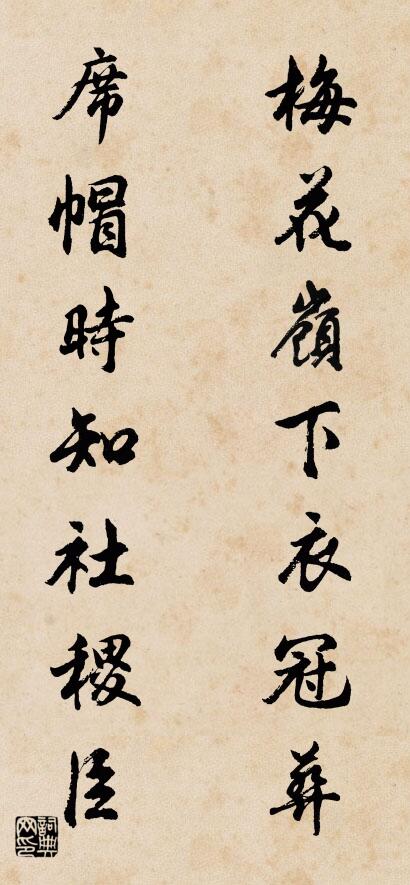 梅花嶺下衣冠葬
席帽時知社稷臣
詞典网印